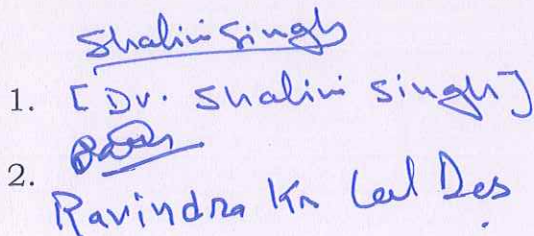 Shalini Singh
1. [Dr. Shalini Singh]
2.
Ravindra Kr Lal Das